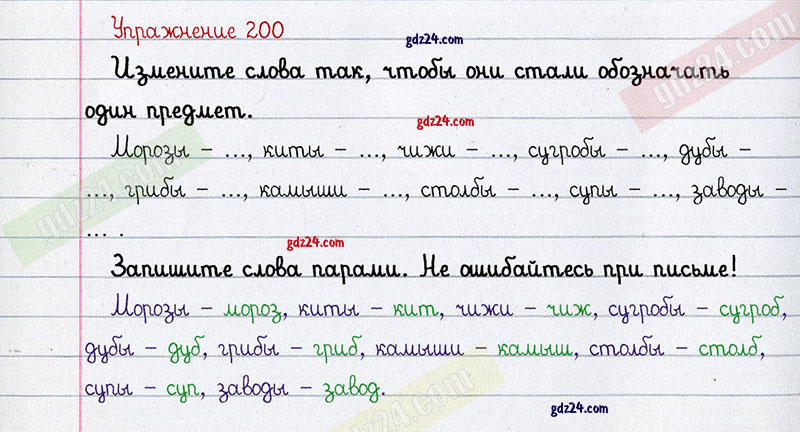 Упражнение 200
gdz24.com
Измените слова так, чтобы они стали обозначать
один предмет.
gdz24.com
Морозы – ..., киты – ..., чижи – ..., сугробы – ..., дубы –
..., грибы – ..., камыши – ..., столбы – ..., супы – ..., заводы –
... .
gdz24.com
Запишите слова парами. Не ошибайтесь при письме!
Морозы – мороз, киты – кит, чижи – чиж, сугробы – сугроб,
дубы – дуб, грибы – гриб, камыши – камыш, столбы – столб,
супы – суп, заводы – завод.
gdz24.com
gdz24.com
gdz24.com
gdz24.com